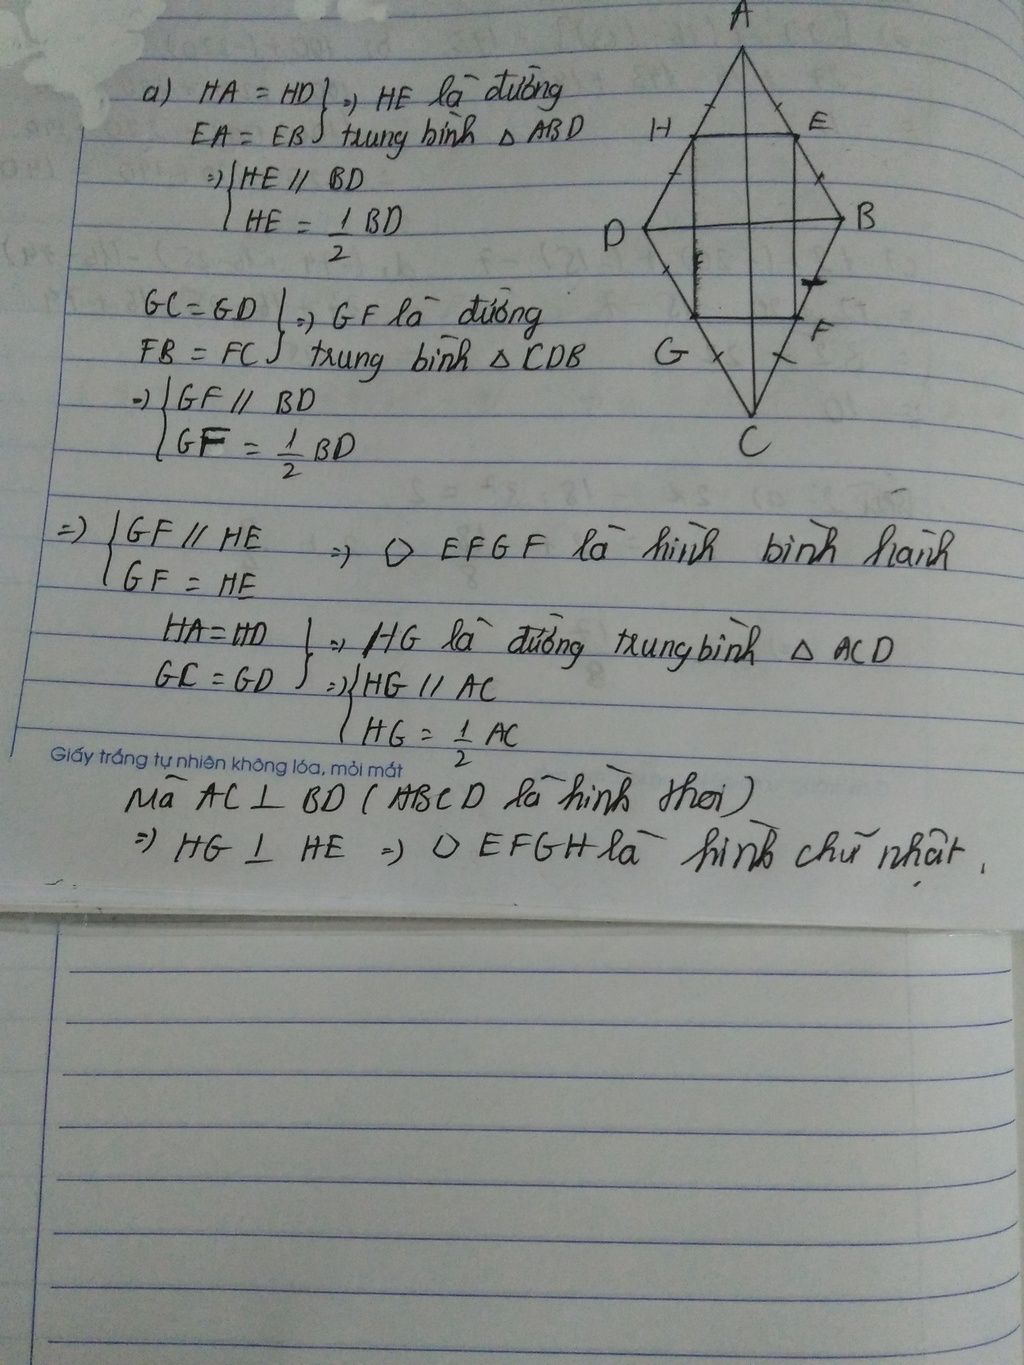 A
a) HA = HD } => HE là đường
EA = EB } trung bình △ ABD
=> { HE // BD
HE = 1/2 BD
H E
D B
GC = GD } => GF là đường
FB = FC } trung bình △ CDB
=> { GF // BD
GF = 1/2 BD
G F
C
=> { GF // HE => EFGF là hình bình hành
GF = HE
HA = HD } => HG là đường trung bình △ ACD
GC = GD } => { HG // AC
HG = 1/2 AC
Giấy trắng tự nhiên không lóa, mỏi mắt
Mà AC ⊥ BD (ABCD là hình thoi)
=> HG ⊥ HE => EFGH là hình chữ nhật.